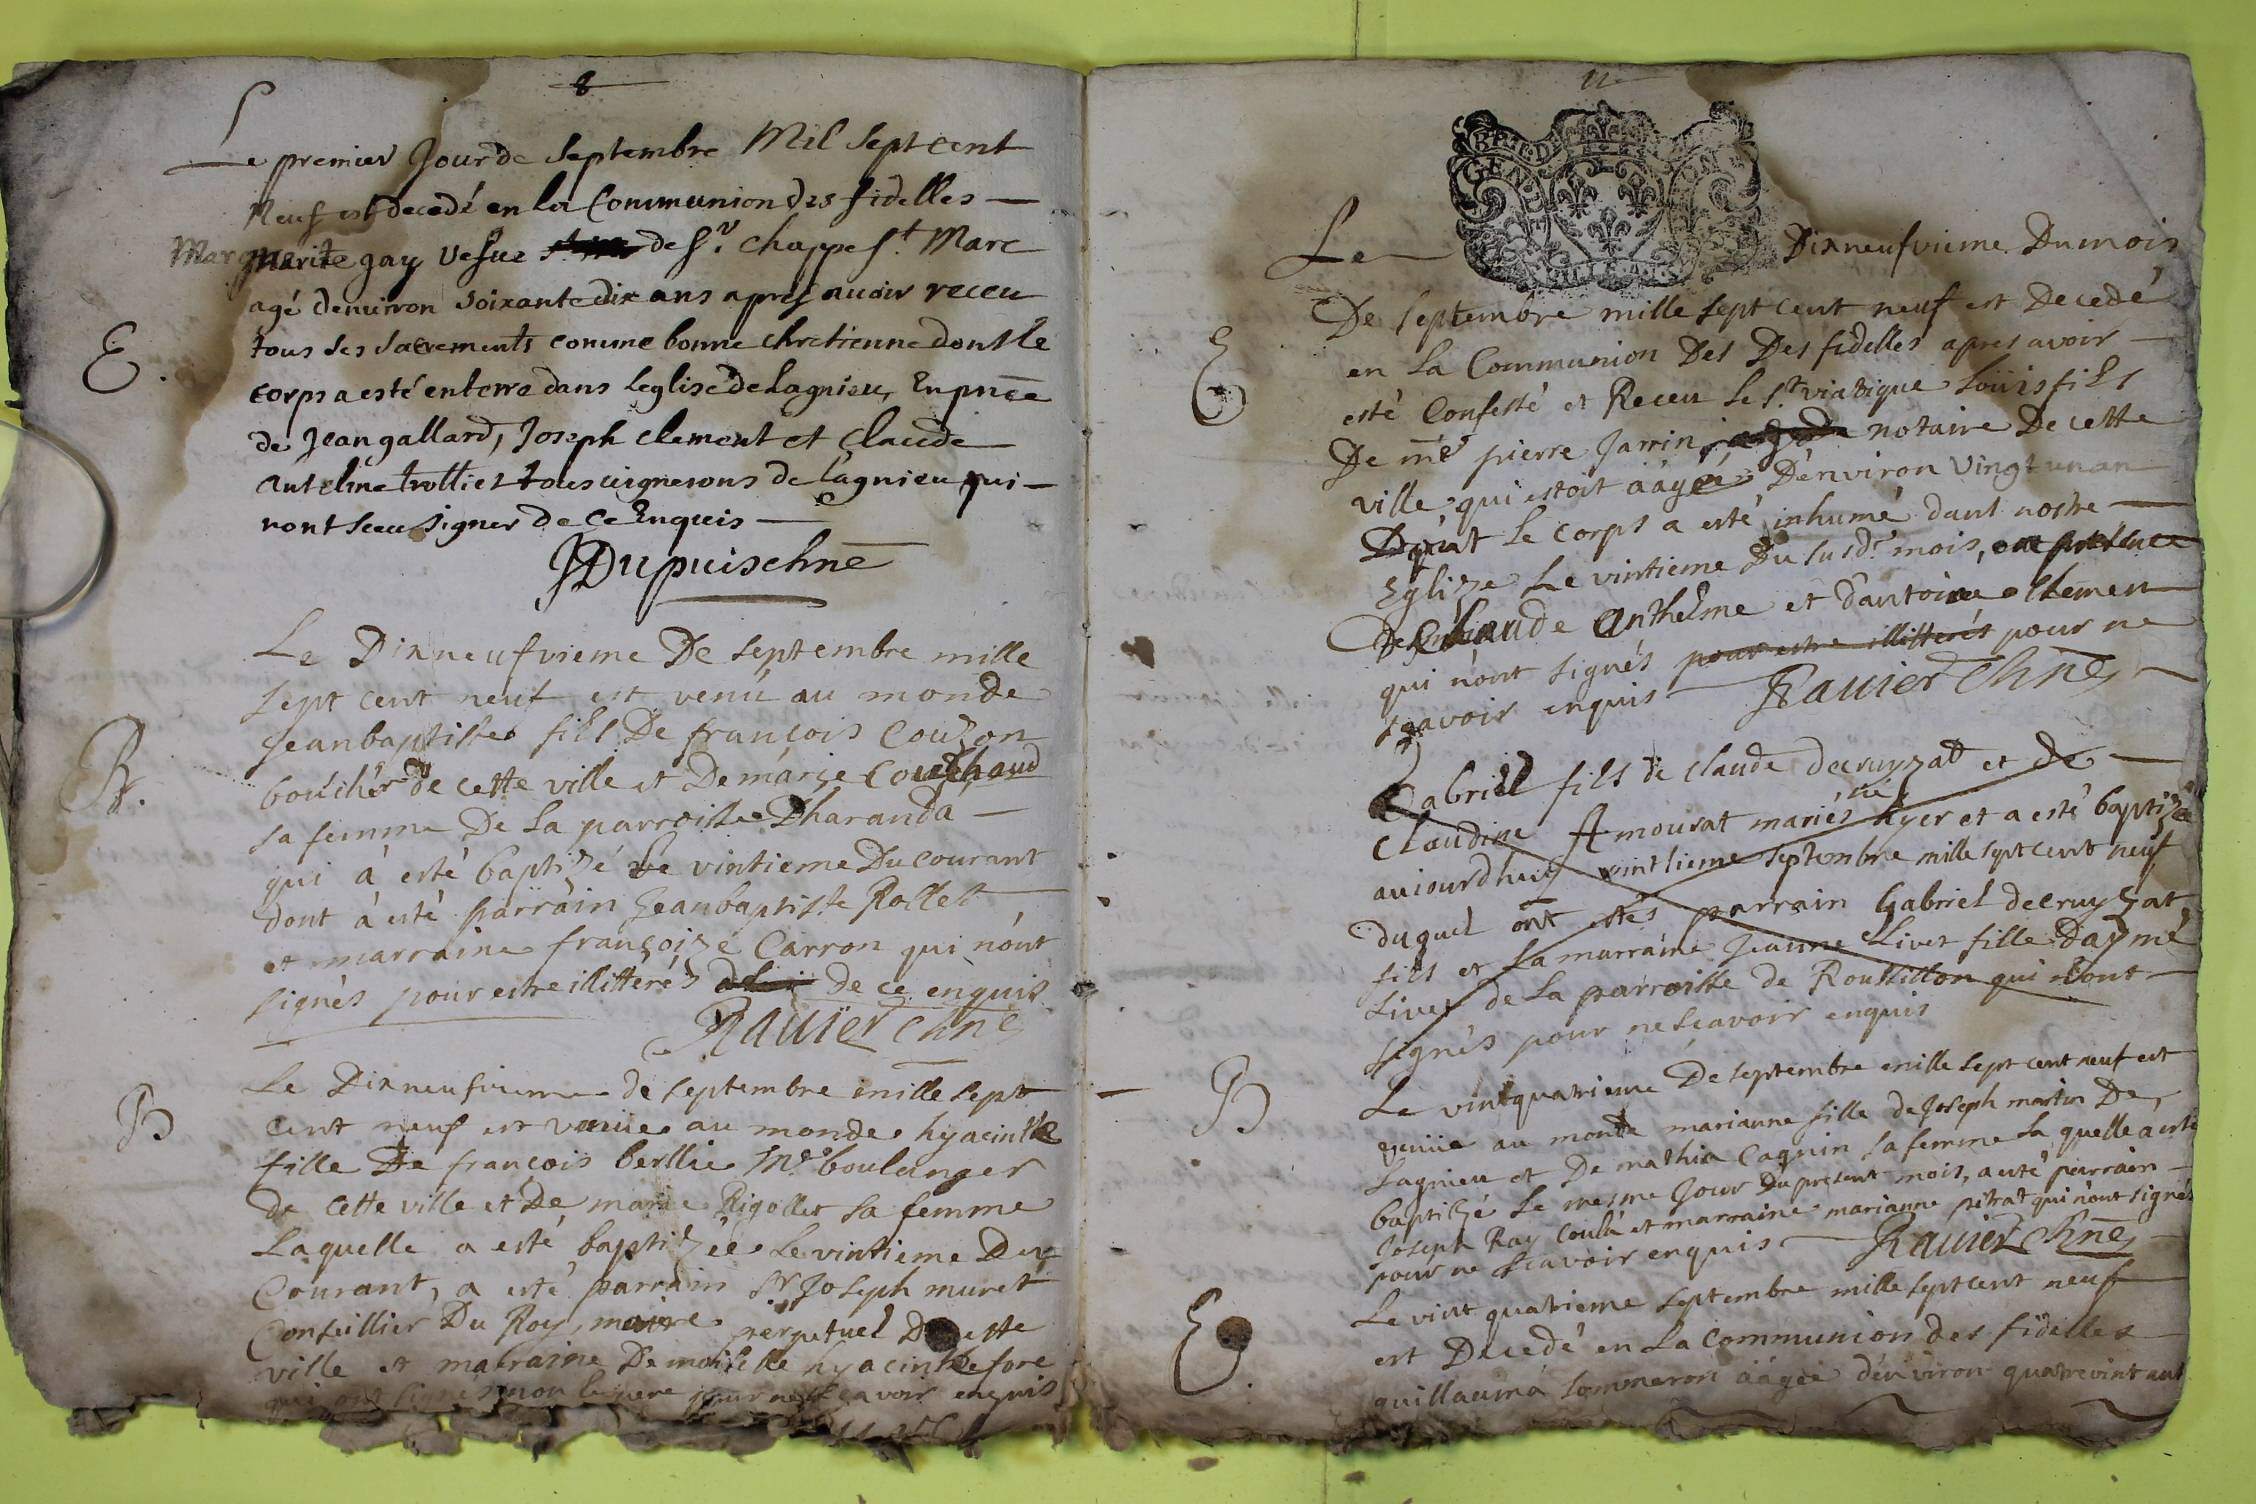 8
Le premier Jour de Septembre Mil Sept cent
Neuf est decedé en la Communion des fidelles
Marguerite gay Vefue de Sr. Chappe St. Marc
agé denuiron Soixante dix ans apres auoir receu
E. tous ses Sacrements comme bonne chretienne dont le
corps a esté enterre dans leglise de Lagnieu, En pnce
de Jean gallard, Joseph Clement et Claude
Antelme trolliet tous uignerons de Lagnieu qui
nont sceu signer de ce Enquis
JDupuis chne
Le Dixneufvieme De septembre mille
sept cent neuf est venu au monde
Jeanbaptiste fils De françois Couzon
B. bouchér de cette ville et De marie
sa femme De la parroisse Dharanda
qui à esté baptizé Le vintieme Du courant
dont à esté parrain Jeanbaptiste Rollet
et marraine françoize Carron qui n'ont
signés pour estre illitterés de ce enquis
Rauier chne
Le Dixneufvieme de septembre mille sept
B cent neuf est venüe au monde hyacinthe
fille De françois berllie Me. boulanger
de cette ville et De marie Rigollet sa femme
Laquelle a esté baptizée Le vintieme Du
Courant, a esté parrain Sr Joseph muret
Conseillier Du Roy, maire perpetuel De cette
ville et marraine Demoiselle hyacinthe fore
qui ont signes non le pere pour ne sçavoir enquis
11
GEN
Le Dixneufvieme Du mois
De septembre mille sept cent neuf est Decedé
E en La Communion Des Des fidelles apres avoir
esté Confessé et Receu Le St. viatique Loüis fils
De me pierre Jarrin notaire De cette
ville qui estoit aâgé D'environ Vingt un an
Duquel Le corps a esté inhumé dans nostre
Eglize Le vintieme Du susd. mois, en presence
De Claude Anthelme et d'antoine Clement
qui n'ont signés pour estre illitterés pour ne
sçavoir enquis Rauier Chne
Gabriel fils de claude decruyzat et de
Claudine Amourat mariés hyer et a esté baptizé
aujourdhuy vintieme septembre mille sept cent neuf
duquel ont estés parrain Gabriel decruyzat
fils et La marraine Jeanne Livet fille Daymé
Livet de La parroisse de Roussillon qui n'ont
signés pour ne sçavoir enquis
B Le vint quatrieme De septembre mille sept cent neuf est
venüe au monde marianne fille de Joseph martin De
Lagnieu et De mathia Cagnin sa femme La quelle a esté
baptizé Le mesme Jour Du present mois, a esté parrain
Joseph Ray et marraine marianne pétrat qui n'ont signés
pour ne sçavoir enquis Rauier Chne
Le vint quatrieme septembre mille sept cent neuf
E. est Decedé en La Communion des fidelles
guillauma Sommeron aâgée d'environ quatrevint ans